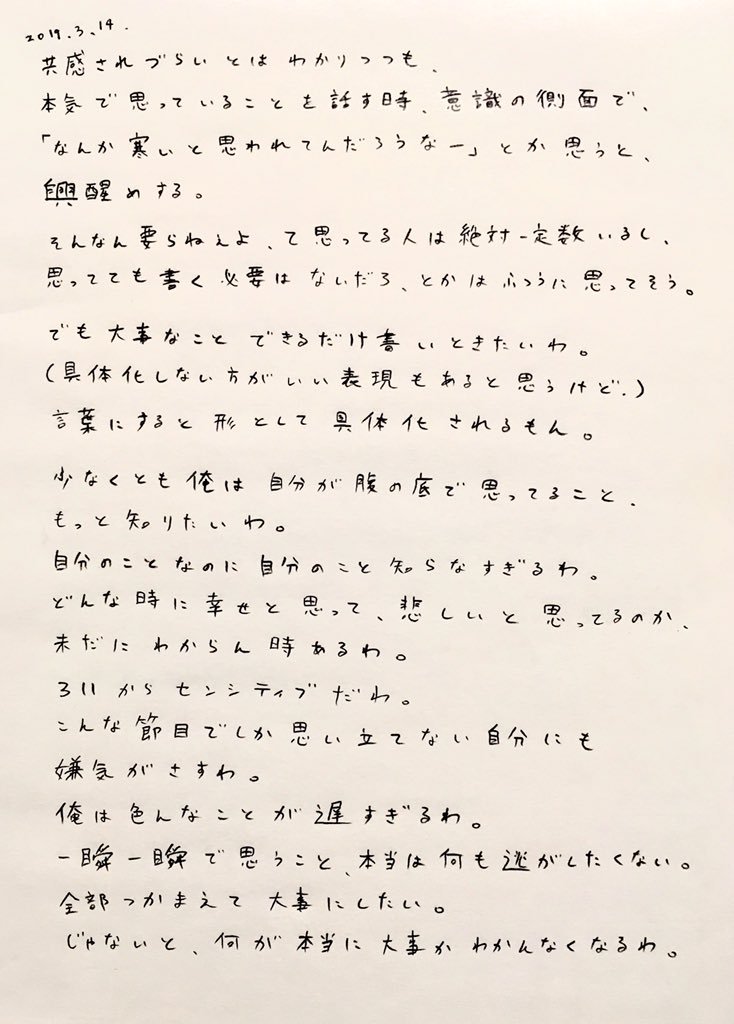 2019.3.14.
共感されづらいとはわかりつつも、
本気で思っていることを話す時、意識の側面で、
「なんか寒いと思われてんだろうなー」とか思うと、
興醒めする。
そんなん要らねえよ、て思ってる人は絶対一定数いるし、
思ってても書く必要はないだろ、とかはふつうに思ってそう。
でも大事なことできるだけ書いときたいわ。
(具体化しない方がいい表現もあると思うけど.)
言葉にすると形として具体化されるもん。
少なくとも俺は自分が腹の底で思ってること、
もっと知りたいわ。
自分のことなのに自分のこと知らなすぎるわ。
どんな時に幸せと思って、悲しいと思ってるのか、
未だにわからん時あるわ。
311からセンシティブだわ。
こんな節目でしか思い立てない自分にも
嫌気がさすわ。
俺は色んなことが遅すぎるわ。
一瞬一瞬で思うこと、本当は何も逃がしたくない。
全部つかまえて大事にしたい。
じゃないと、何が本当に大事かわかんなくなるわ。